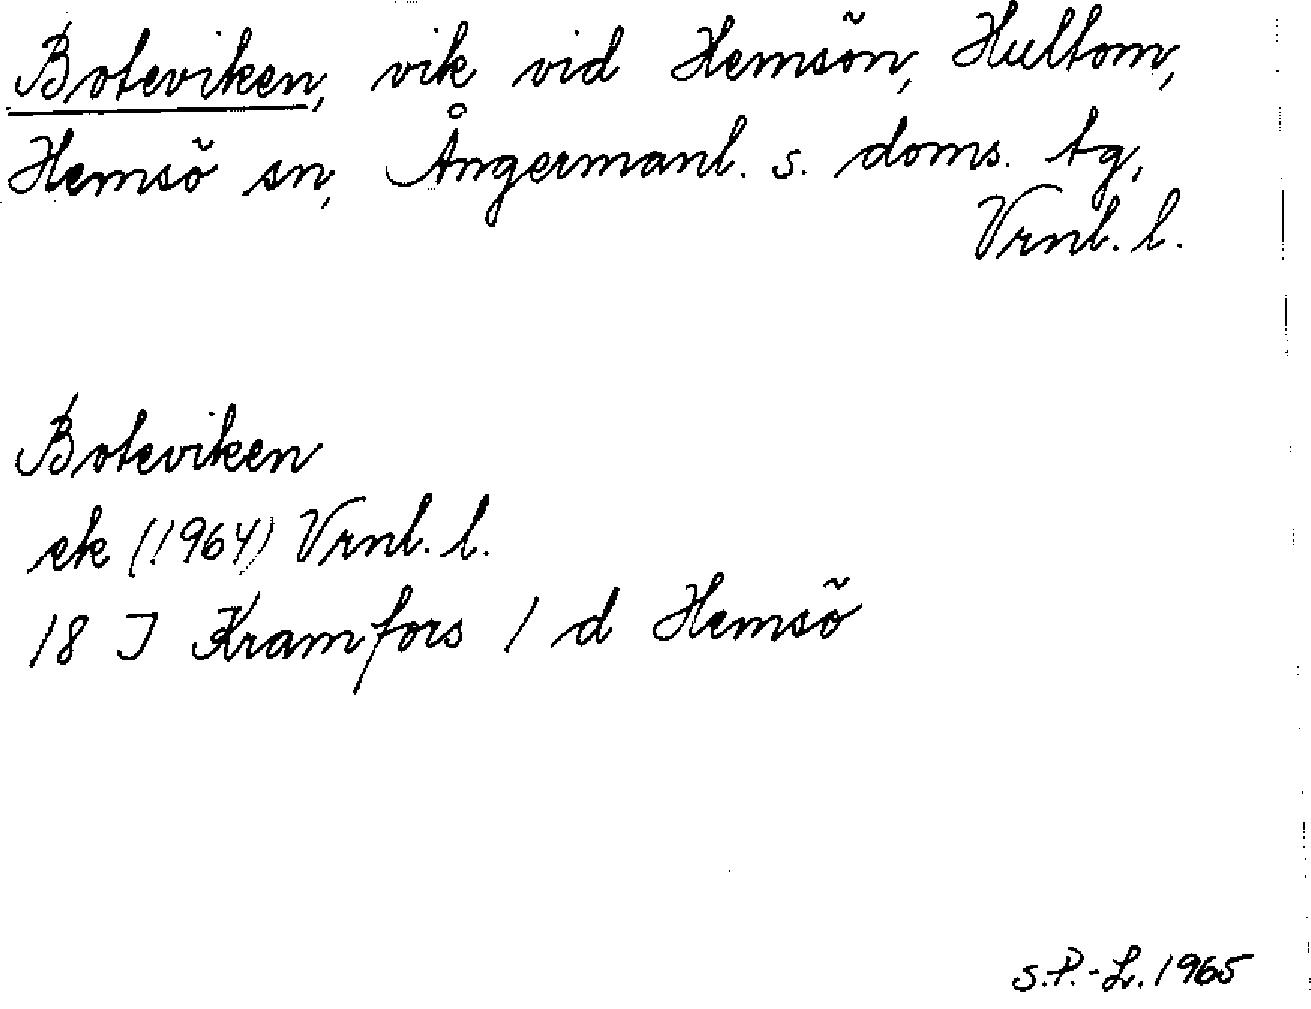 Boteviken, vik vid Hemsön, Hultom,
Hemsö sn, Ångermanl. s. doms. tg,
Vrnl. l.
Boteviken
ek (1964) Vrnl. l.
18 I Kramfors 1 d Hemsö
S.P.-L. 1965